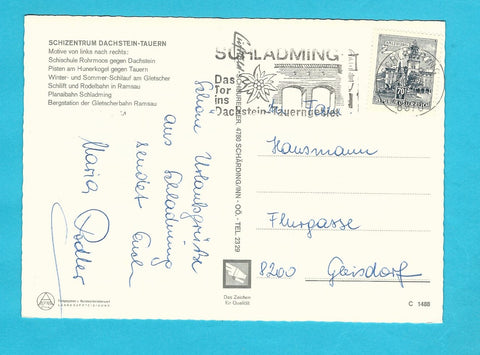 SCHIZENTRUM DACHSTEIN-TAUERN
Motive von links nach rechts:
Schischule Rohrmoos gegen Dachstein
Pisten am Hunerkogel gegen Tauern
Winter- und Sommer-Schilauf am Gletscher
Schilift und Rodelbahn in Ramsau
Planaibahn Schladming
Bergstation der Gletscherbahn Ramsau
SCHLADMING
Das
Tor
ins
Dachstein-Tauerngebiet
Schöne Urlaubsgrüße
aus Schladming
sendet Euch
Maria
4780 SCHÄRDING/INN - OÖ. - TEL. 2329
Fam.
Hausmann
Flurgasse
8200 Gleisdorf
Das Zeichen
für Qualität
C 1488